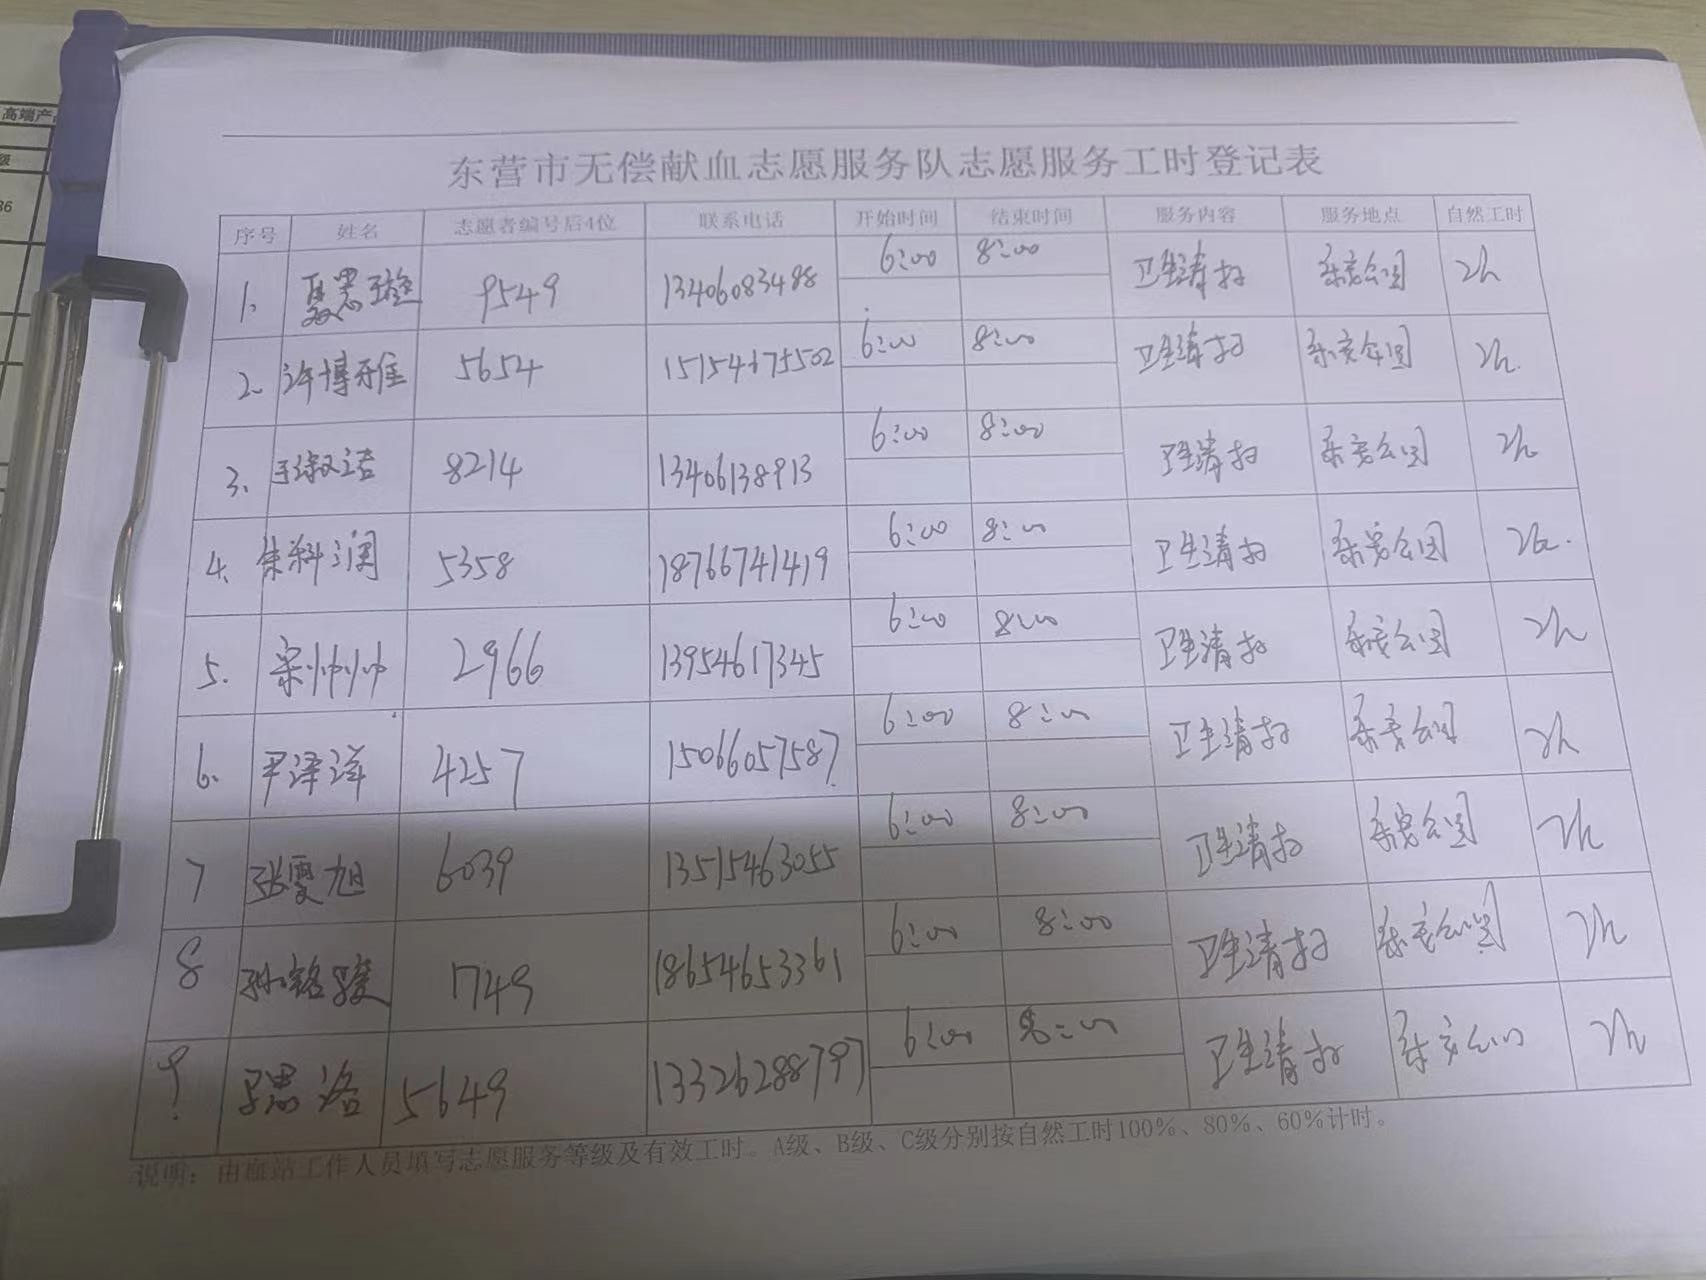 高端产
级
36
东营市无偿献血志愿服务队志愿服务工时登记表
序号 姓名 志愿者编号后4位 联系电话 开始时间 结束时间 服务内容 服务地点 自然工时
1. 9549 13406083488 6:00 8:00 卫生清扫 公园 2h
2. 许博 5654 15154675502 6:00 8:00 卫生清扫 公园 2h.
3. 8214 13406138913 6:00 8:00 卫生清扫 公园 2h
4. 朱科润 5358 18766741419 6:00 8:00 卫生清扫 公园 2h.
5. 宋帅帅 2966 13954617345 6:00 8:00 卫生清扫 公园 2h
6. 尹泽洋 4257 15066057587 6:00 8:00 卫生清扫 公园 2h
7 张雯旭 6039 13515463055 6:00 8:00 卫生清扫 公园 2h
8 孙铭骏 1749 18654653361 6:00 8:00 卫生清扫 公园 2h
9 思洛 5649 13326288797 6:00 8:00 卫生清扫 2h
说明：由血站工作人员填写志愿服务等级及有效工时。A级、B级、C级分别按自然工时100%、80%、60%计时。